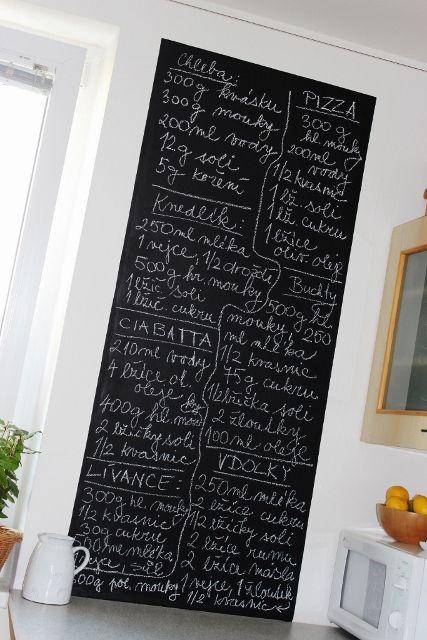 Chleba:
300g kvásku
300g mouky
200ml vody
12g soli
5g koření
Knedlík:
250ml mléka
1 vejce, 1/2 droždí
500g hr. mouky
1 lžič. soli
1 lžič. cukru
CIABATTA
210ml vody
4 lžíce ol.
oleje
400g hl. mou
2 lžičky soli
1/2 kvasnic
LÍVANCE:
300g hl. mouky
1/2 kvasnic
30g cukru
500ml mléka
vejce, sůl
PIZZA
300g
hl. mouky
200ml
vody
1/2 kvasnic
1 lž. soli
1 lž. cukru
1 lžíce
oliv. oleje
Buchty
500g hl.
mouky, 250
ml mléka
1/2 kvasnic
75g cukru
1/2 lžička soli
2 žloutky
100ml oleje
VDOLKY
250ml mléka
2 lžíce cukru
1/2 lžičky soli
2 lžíce rumu
2 lžíce másla
500g pol. mouky, 1 vejce, 1 žloutek
1/2 kvasnic